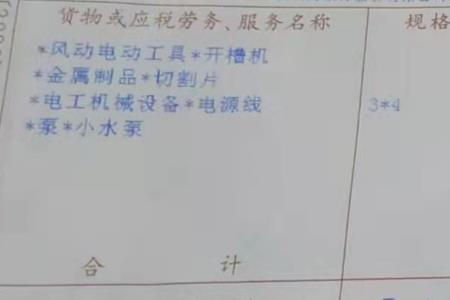 货物或应税劳务、服务名称 规格
*风动电动工具*开槽机
*金属制品*切割片
*电工机械设备*电源线 3*4
*泵*小水泵
合 计